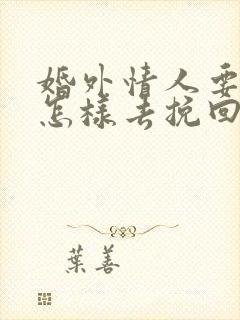 婚外情人要
怎样去挽回
葉善